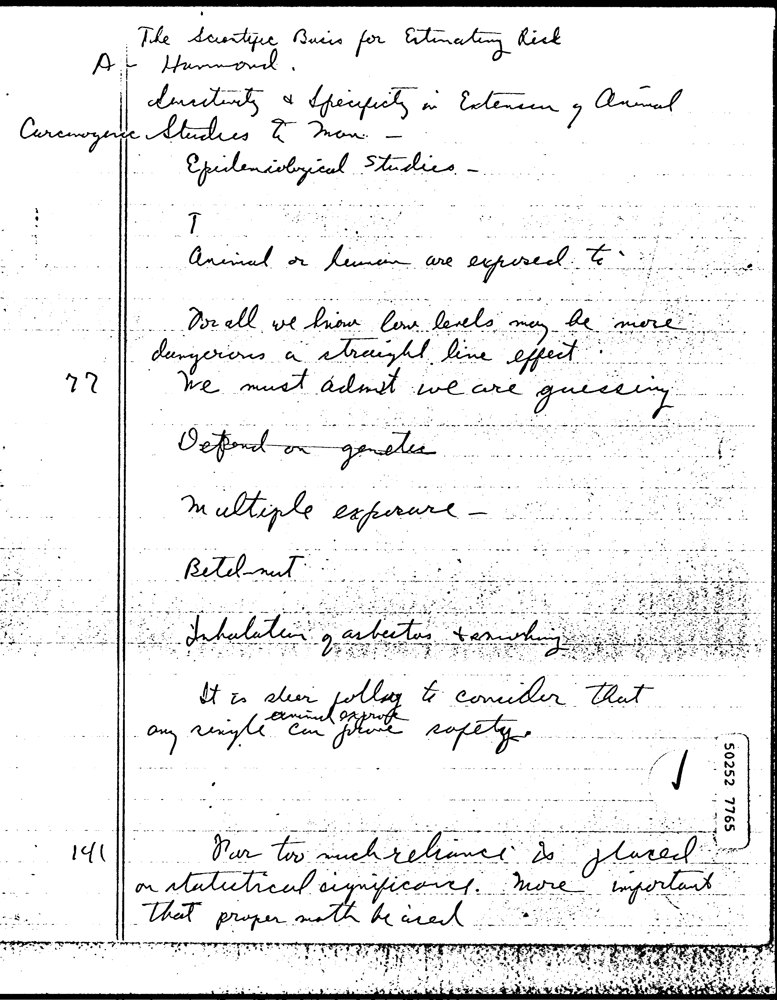 The Scientific Basis for Estimating Risk
A - Hammond.
Sensitivity & Specificity in Extension of Animal
Carcinogenic Studies to Man. -
Epidemiological Studies -
T
Animal or human are exposed to
For all we know low levels may be more
dangerous a straight line effect.
77 We must admit we are guessing
Depend on genetic
Multiple exposure -
Betel-nut
Inhalation of asbestos & smoking
It is sheer folley to consider that
animal
any single can prove safety.
50252 7765
141 Far too much reliance is placed
on statistical significance. More important
that proper math be used